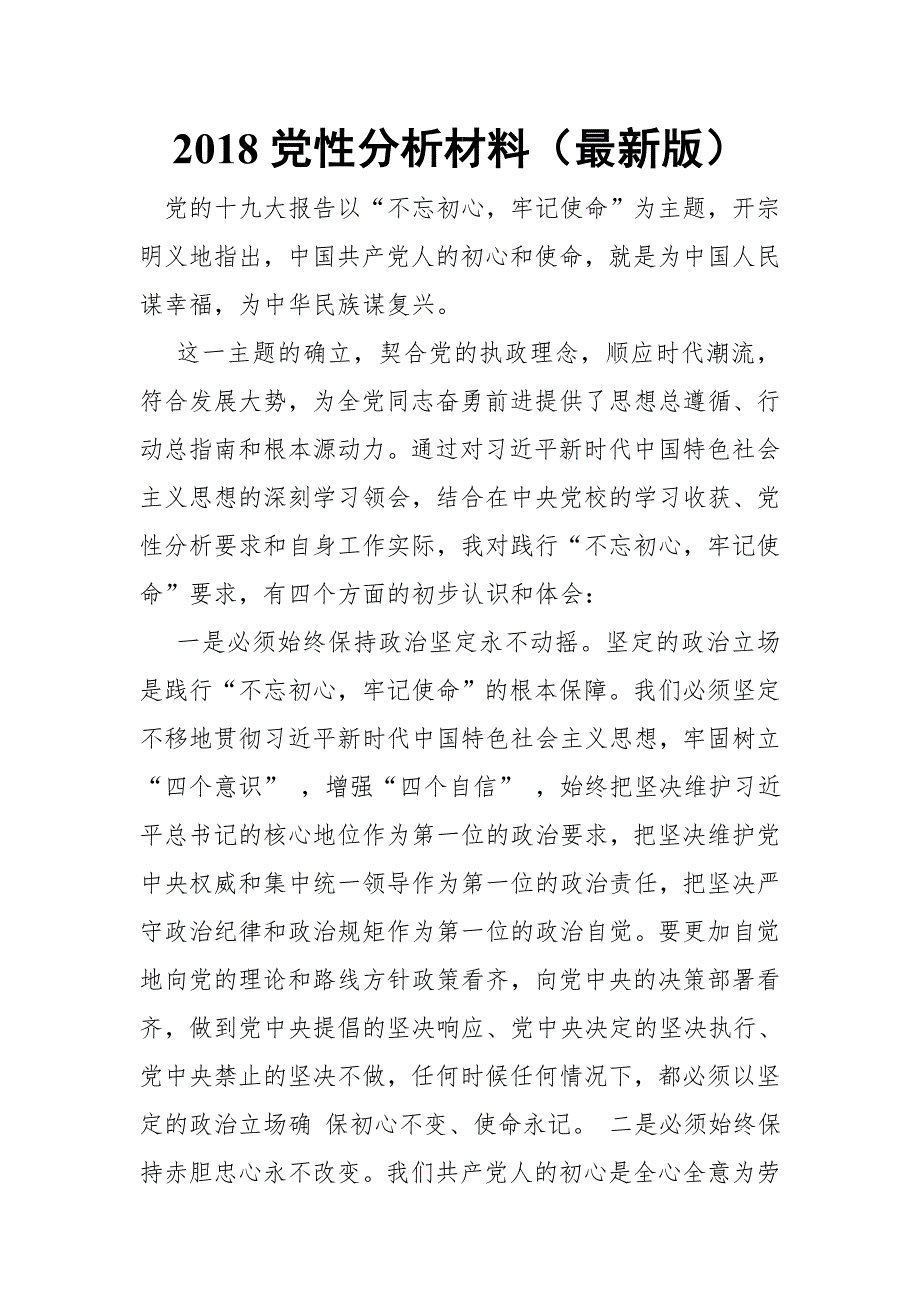 2018 党性分析材料（最新版）
党的十九大报告以“不忘初心，牢记使命”为主题，开宗
明义地指出，中国共产党人的初心和使命，就是为中国人民
谋幸福，为中华民族谋复兴。
这一主题的确立，契合党的执政理念，顺应时代潮流，
符合发展大势，为全党同志奋勇前进提供了思想总遵循、行
动总指南和根本源动力。通过对习近平新时代中国特色社会
主义思想的深刻学习领会，结合在中央党校的学习收获、党
性分析要求和自身工作实际，我对践行“不忘初心，牢记使
命”要求，有四个方面的初步认识和体会：
一是必须始终保持政治坚定永不动摇。坚定的政治立场
是践行“不忘初心，牢记使命”的根本保障。我们必须坚定
不移地贯彻习近平新时代中国特色社会主义思想，牢固树立
“四个意识” ，增强“四个自信” ，始终把坚决维护习近
平总书记的核心地位作为第一位的政治要求，把坚决维护党
中央权威和集中统一领导作为第一位的政治责任，把坚决严
守政治纪律和政治规矩作为第一位的政治自觉。要更加自觉
地向党的理论和路线方针政策看齐，向党中央的决策部署看
齐，做到党中央提倡的坚决响应、党中央决定的坚决执行、
党中央禁止的坚决不做，任何时候任何情况下，都必须以坚
定的政治立场确 保初心不变、使命永记。 二是必须始终保
持赤胆忠心永不改变。我们共产党人的初心是全心全意为劳